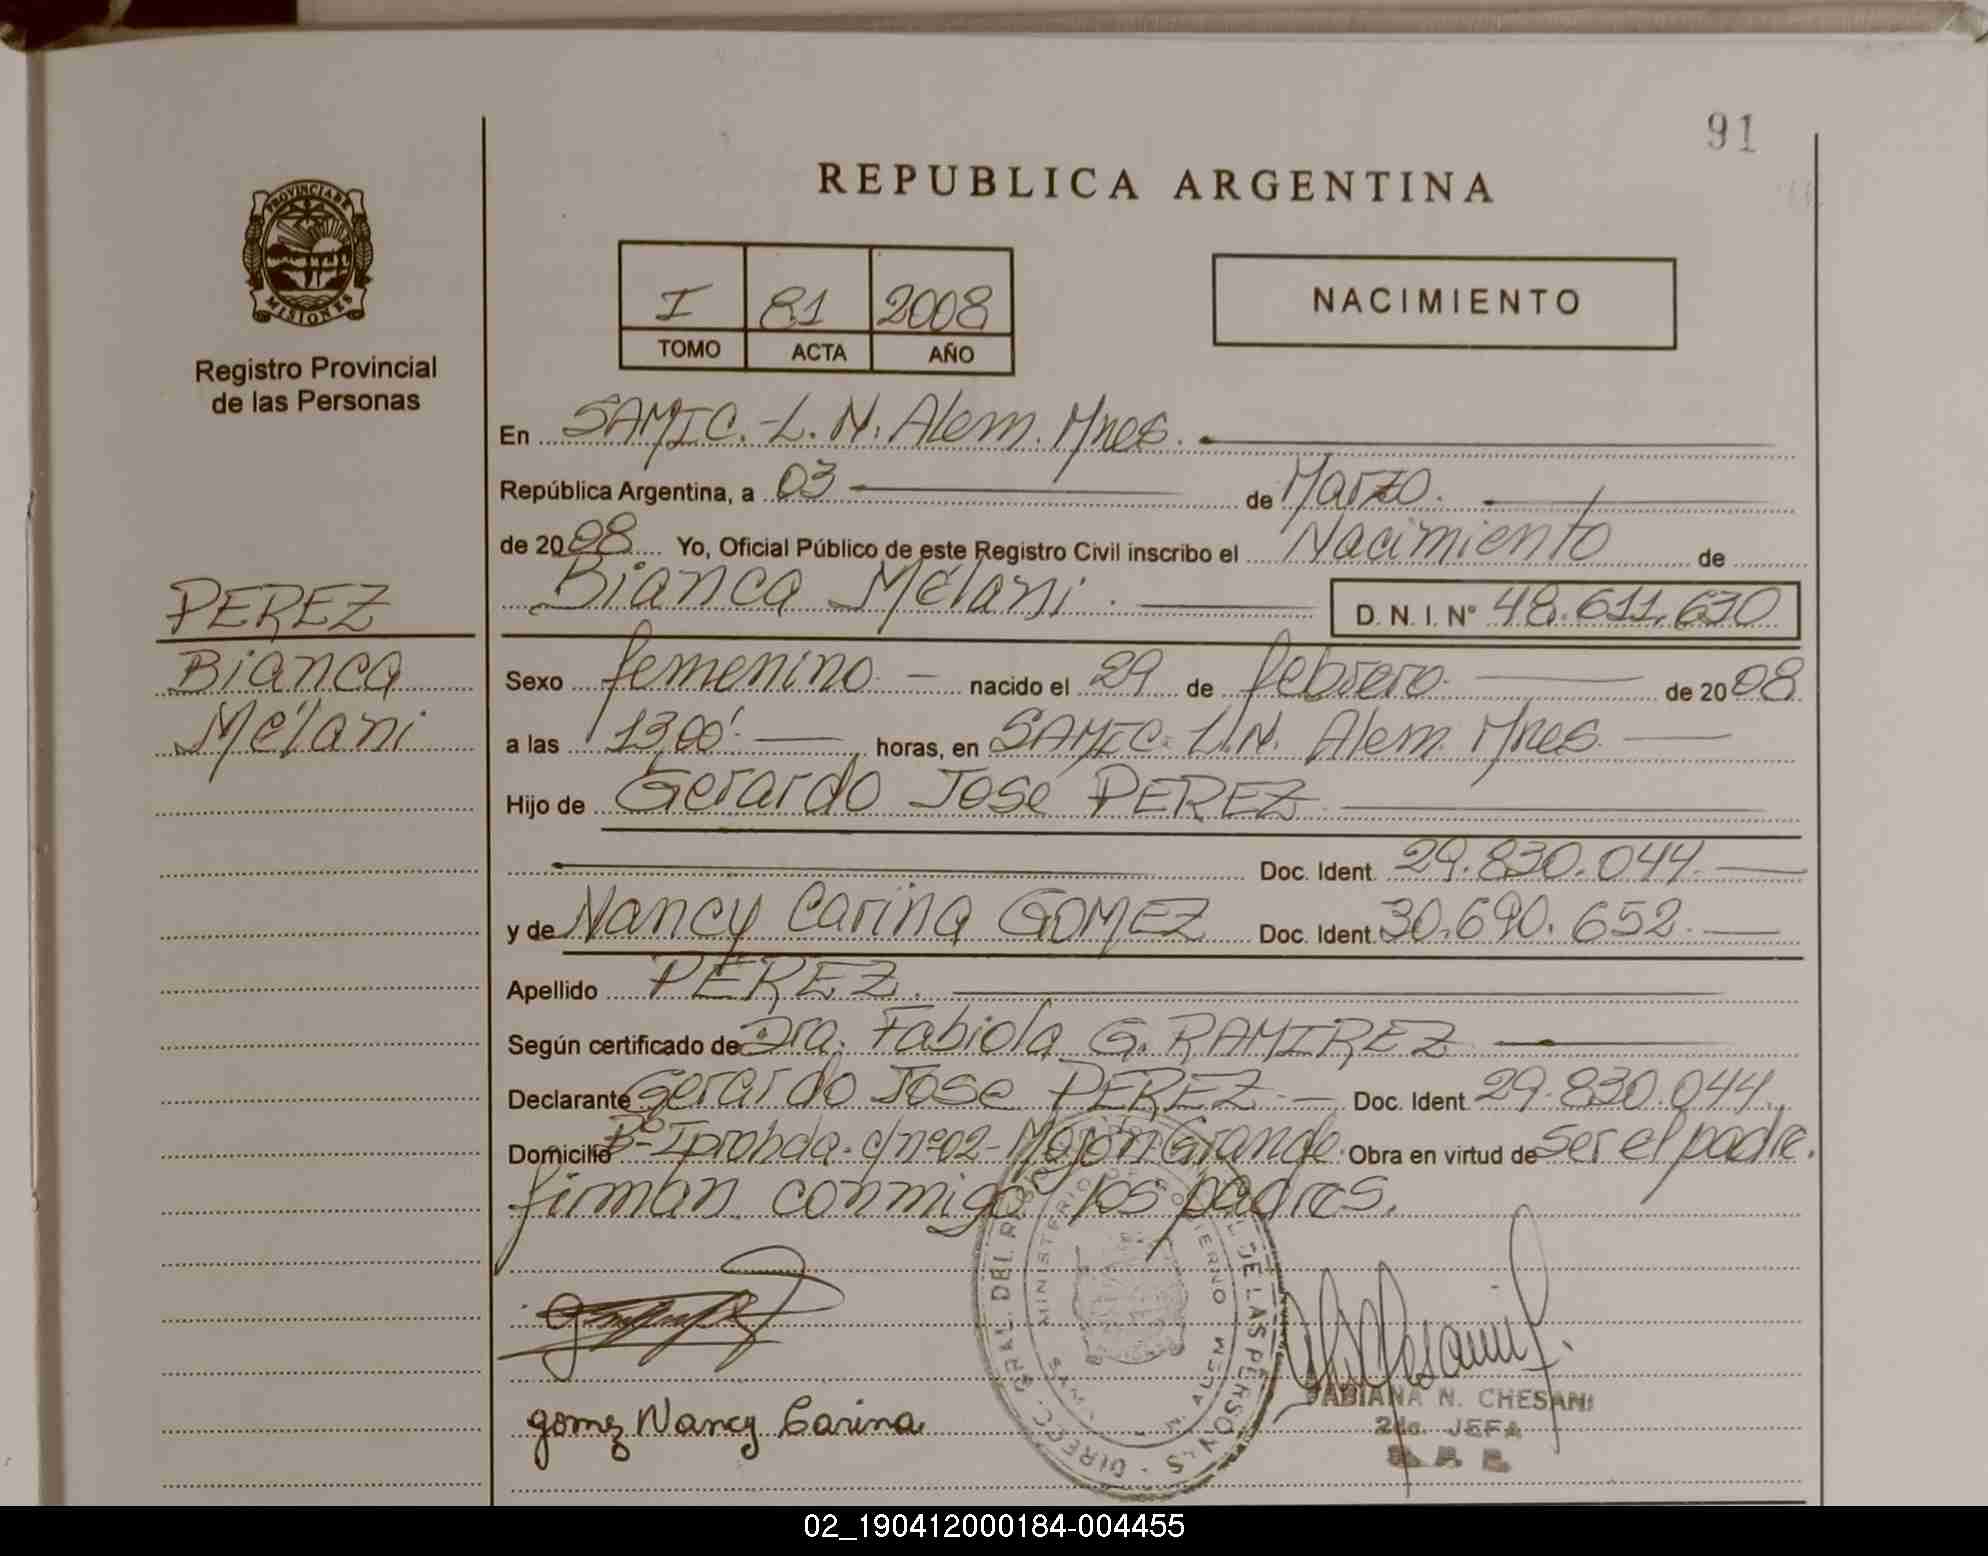 91
REPUBLICA ARGENTINA
PROVINCIA DE
MISIONES
Registro Provincial
de las Personas
I 81 2008
TOMO ACTA AÑO
NACIMIENTO
En SAMIC.-L. N. Alem. Mnes.
República Argentina, a 03 de Marzo.
de 2008 Yo, Oficial Público de este Registro Civil inscribo el Nacimiento de
Bianca Mélani. D. N. I. N° 48.611.630
PEREZ
Bianca
Mélani
Sexo femenino. nacido el 29 de febrero. de 2008
a las 13,00'. horas, en SAMIC. L.N. Alem. Mnes.
Hijo de Gerardo José PEREZ
Doc. Ident. 29.830.044.
y de Nancy Carina GOMEZ Doc. Ident. 30.690.652.
Apellido PEREZ.
Según certificado de Dra. Fabiola G. RAMIREZ
Declarante Gerardo José PEREZ.- Doc. Ident. 29.830.044.
Domicilio B°- c/n°02- Mojón Grande. Obra en virtud de ser el padre.
firman conmigo los padres.
DIREC. GRAL. DEL DE LAS PERSONAS
MINISTERIO DE GOBIERNO
ALEM
gomez Nancy Carina
FABIANA N. CHESANI
2da. JEFA
02_190412000184-004455